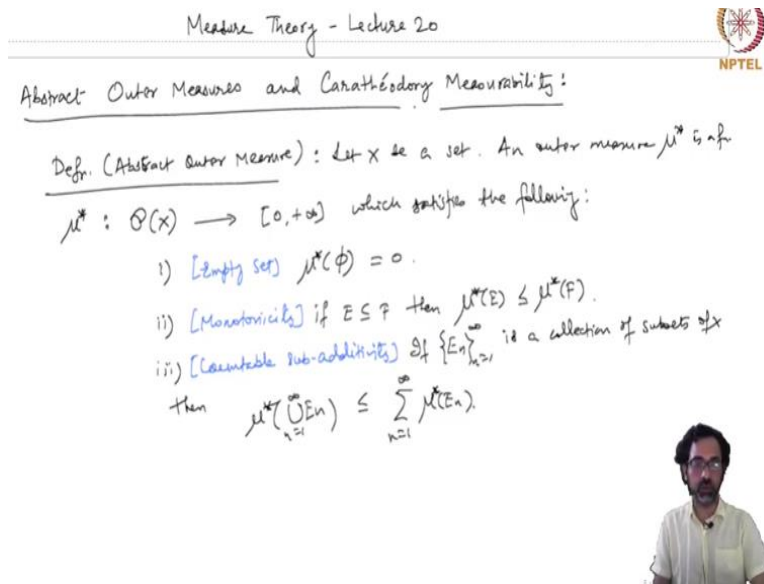 Measure Theory - Lecture 20
NPTEL
Abstract Outer Measures and Carathéodory Measurability:
Defn. (Abstract Outer Measure): Let X be a set. An outer measure μ* is a fn
μ* : P(X) → [0, +∞] which satisfies the following:
i) [Empty set] μ*(φ) = 0.
ii) [Monotonicity] if E ⊆ F then μ*(E) ≤ μ*(F).
iii) [Countable sub-additivity] If {En}_{n=1}^∞ is a collection of subsets of X
then μ*(⋃_{n=1}^∞ En) ≤ ∑_{n=1}^∞ μ*(En).